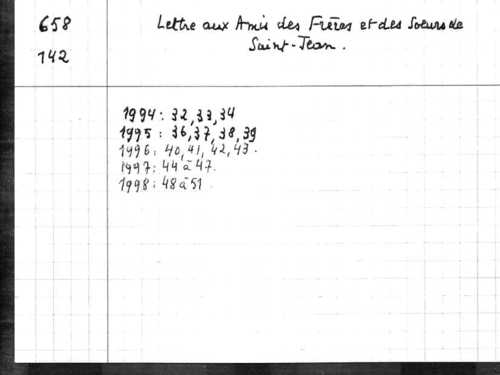 658
142
Lettre aux Amis des Frères et des Soeurs de
Saint-Jean.
1994: 32, 33, 34
1995: 36, 37, 38, 39
1996: 40, 41, 42, 43.
1997: 44 à 47.
1998: 48 à 51